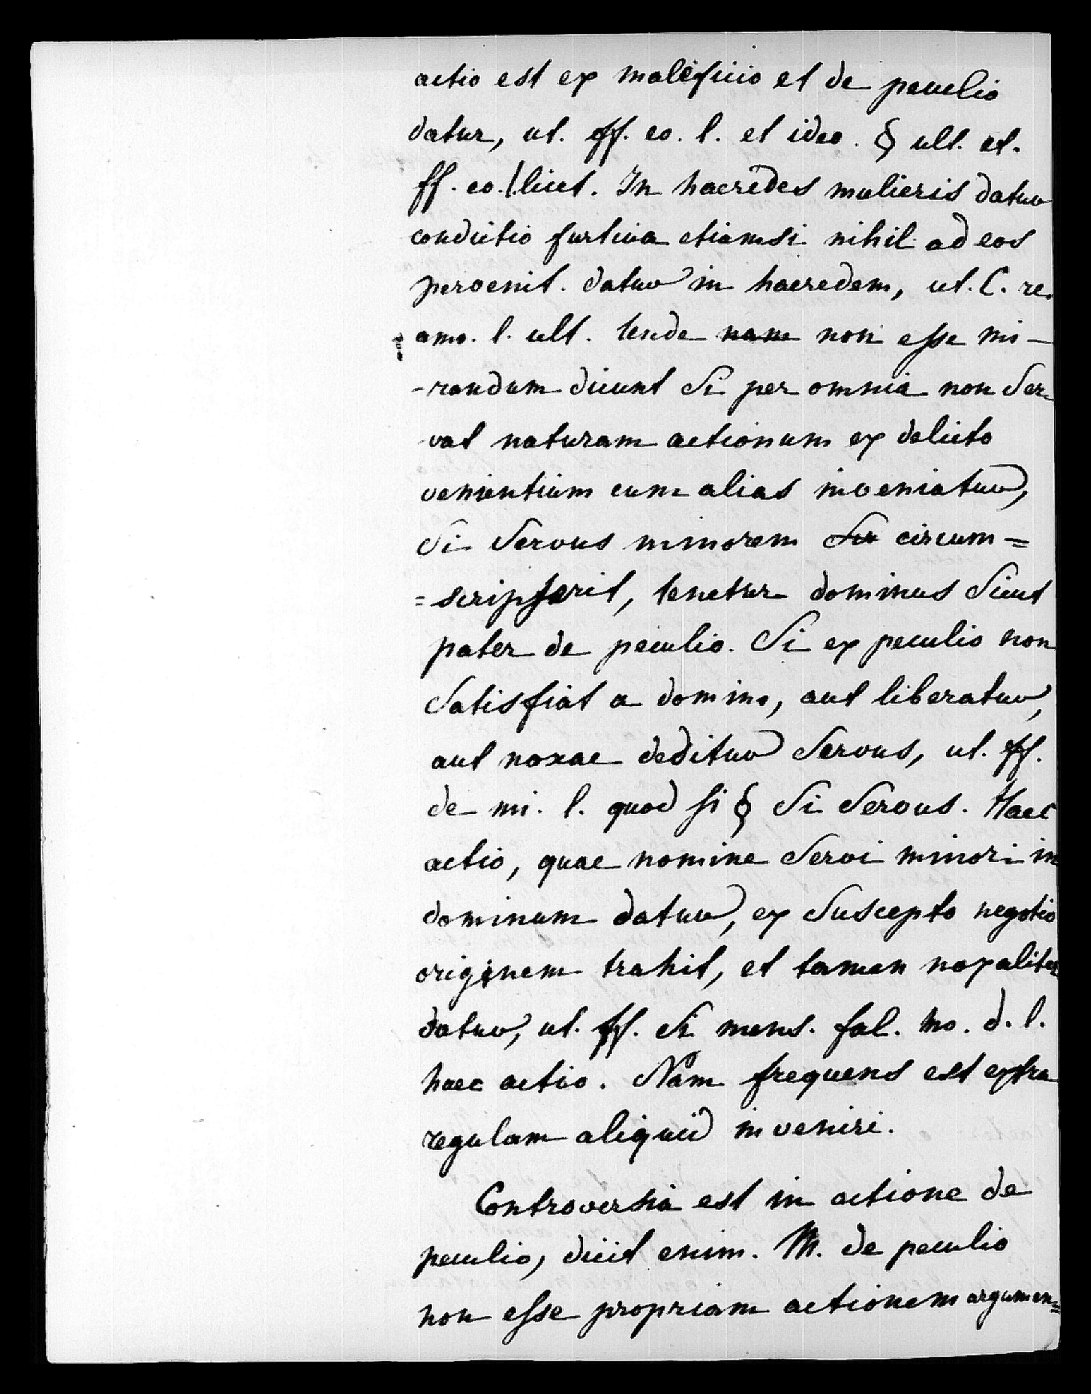 actio est ex maleficio et de peculio
datur, ut. ff. eo. l. et ideo. § ult. et.
ff. eo. l. licet. In haeredes mulieris datur
condictio furtiva etiamsi nihil ad eos
pervenit. datur in haeredem, ut. C. re.
amo. l. ult. Unde nam non esse mi-
-randum dicunt Si per omnia non Ser-
vat naturam actionum ex delicto
venientium cum alias inveniatur,
Si Servus minorem Sir circum=
=scripserit, tenetur dominus Sicut
pater de peculio. Si ex peculio non
Satisfiat a domino, aut liberatur,
aut noxae deditur Servus, ut. ff.
de mi. l. quod si § Si Servus. Haec
actio, quae nomine Servi minori in
dominum datur, ex Suscepto negotio
originem trahit, et tamen noxaliter
datur, ut. ff. Si mens. fal. mo. d. l.
haec actio. Nam frequens est extra
regulam aliquid inveniri.
Controversia est in actione de
peculio, dicit enim. M. de peculio
non esse propriam actionem argumen=